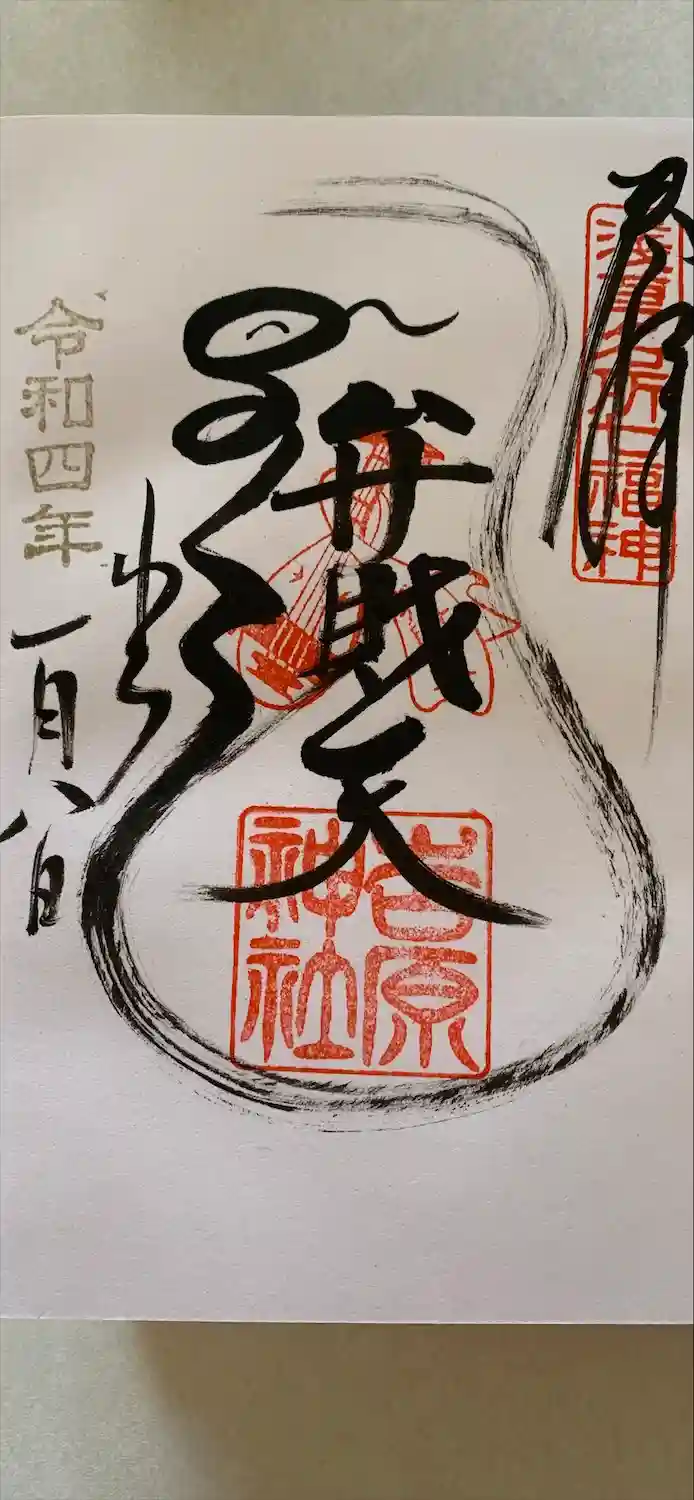 奉拝
浅草名所七福神
弁財天
吉原
神社
令和四年
一月八日